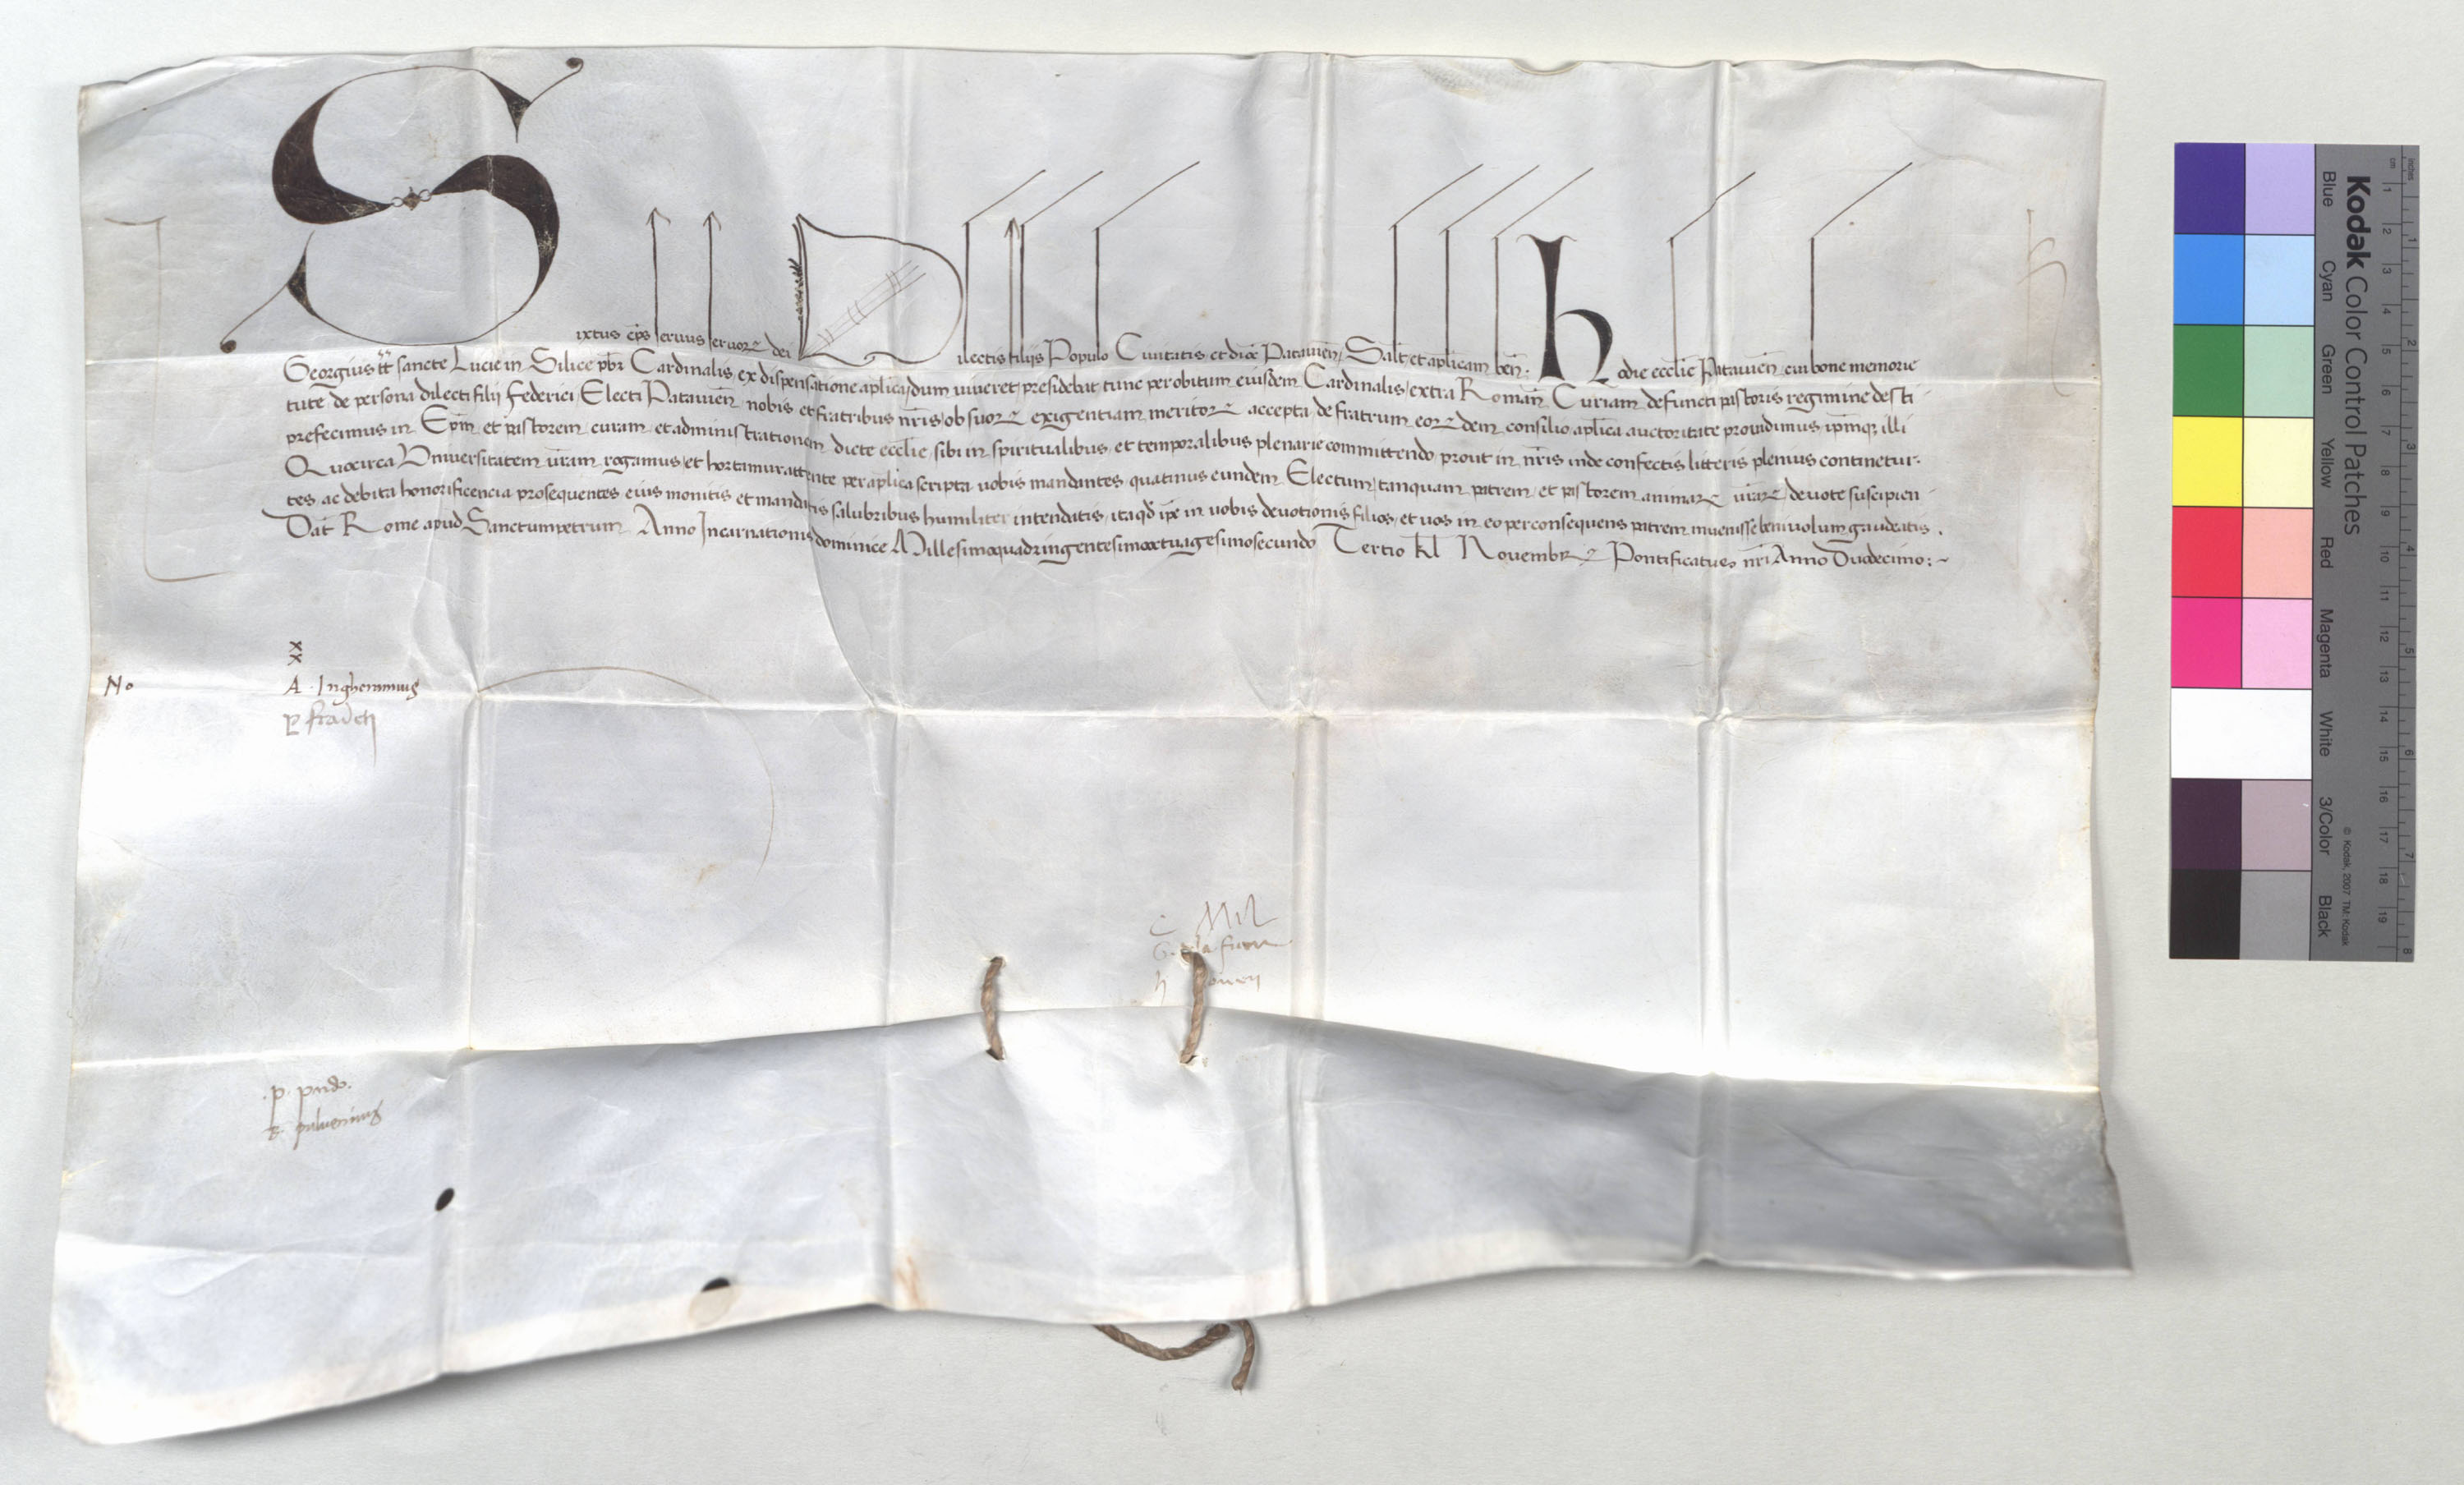 Sixtus ep̄s seruus seruoꝝ dei Dilectis filijs Populo Ciuitatis et dioc̄ Patauien̄ Sal̄t et aplicam ben̄. Hodie eccl̄ie Patauien̄ cui bone memorie
Georgius tt̄ sancte Lucie in Silice pbr̄ Cardinalis ex dispensatione aplica, dum uiueret presidebat tunc per obitum eiusdem Cardinalis, extra Romān Curiam defuncti pastoris regimine desti-
tute de persona dilecti filii Federici Electi Patauien̄ nobis et fratribus nr̄is, ob suoꝝ exigentiam meritoꝝ accepta, de fratrum eoꝝdem consilio apl̄ica auctoritate prouidimus, ip̄mqꝫ illi
prefecimus in Ep̄m et pastorem curam et administrationem dicte eccl̄ie sibi in spiritualibus et temporalibus plenarie committendo prout in nr̄is inde confectis litteris plenius continetur.
Quocirca Vniuersitatem ur̄am rogamus, et hortamur attente per apl̄ica scripta uobis mandantes quatinus eundem Electum, tanquam patrem, et pastorem animaꝝ ur̄aꝝ deuote suscipien-
tes ac debita honorificencia prosequentes eius monitis et mandatis salubribus humiliter intendatis, itaqd̄ ip̄e in uobis deuotionis filios, et uos in eo per consequens patrem inuenisse beniuolum gaudeatis.
Dat̄ Rome apud Sanctumpetrum Anno Incarnationis dominice Millesimoquadringentesimooctuagesimosecundo Tertio kl̄ Nouembꝝ Pontificatus nr̄i Anno Duodecimo:~
xx
No A. Inghirramius
C
G. de la fuen
h
p. pndo.
puluerinus
Kodak Color Control Patches
Blue Cyan Green Yellow Red Magenta White 3/Color Black
© Kodak, 2007 TM: Kodak
cm 1 2 3 4 5 6 7 8 9 10 11 12 13 14 15 16 17 18 19
inches 1 2 3 4 5 6 7 8